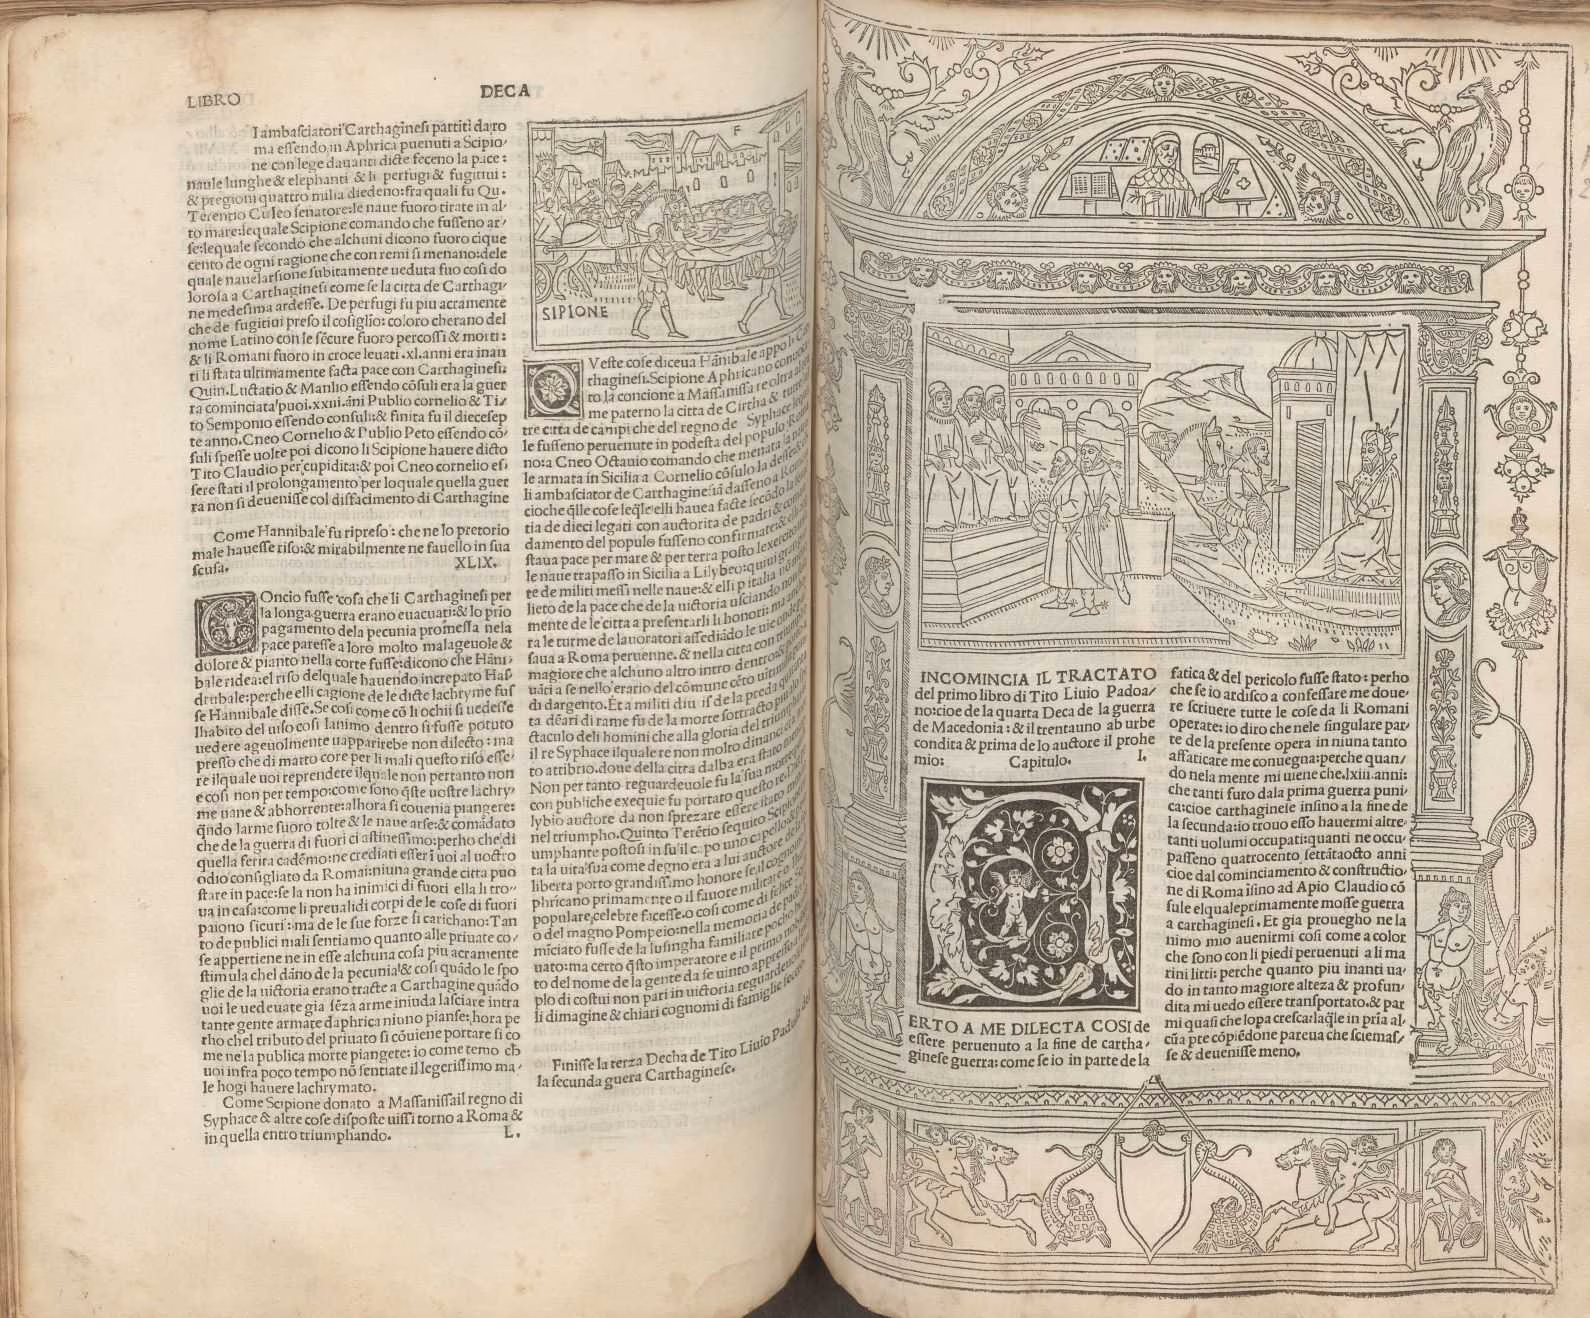 LIBRO
DECA
I ambasciatori Carthaginesi partiti da ro
ma essendo in Aphrica puenuti a Scipio/
ne con lege dauanti dicte feceno la pace:
naule lunghe & elephanti & li perfugi & fugitiui:
& pregioni quattro milia diedeno: fra quali fu Qu.
Terentio Culeo senatore: le naue fuoro tirate in al/
to mare: lequale Scipione comando che fusseno ar/
se: lequale secondo che alchuni dicono fuoro cique
cento de ogni ragione che con remi si menano: dele
quale naue larsione subitamente ueduta fuo cosi do
lorosa a Carthaginesi come se la citta de Carthagi/
ne medesima ardesse. De perfugi fu piu acramente
che de fugitiui preso il cosiglio: coloro cherano del
nome Latino con le sēcure fuoro percossi & morti:
& li Romani fuoro in croce leuati .xl. anni era inan
ti li stata ultimamente facta pace con Carthaginesi:
Quin. Luctatio & Manlio essendo cōsuli era la guer
ra cominciata puoi .xxiii. āni Publio cornelio & Ti/
to Semponio essendo consuli: & finita fu il diecesep
te anno. Cneo Cornelio & Publio Peto essendo cō/
suli spesse uolte poi dicono li Scipione hauere dicto
Tito Claudio per cupidita: & poi Cneo cornelio es
sere stati il prolongamento per loquale quella guer
ra non si deuenisse col disfacimento di Carthagine
Come Hannibale fu ripreso: che ne lo pretorio
male hauesse riso: & mirabilmente ne fauello in sua
scusa. XLIX.
COncio fusse cosa che li Carthaginesi per
la longa guerra erano euacuati: & lo prīo
pagamento dela pecunia promessa nela
pace paresse a loro molto malageuole &
dolore & pianto nella corte fusse: dicono che Hāni/
bale ridea: el riso delquale hauendo increpato Has/
drubale: perche elli cagione de le dicte lachryme fus
se Hannibale disse. Se cosi come cō li ochii si uedesse
lhabito del uiso cosi lanimo dentro si fusse potuto
uedere ageuolmente uapparirebe non dilecto: ma
presso che di matto core per li mali questo riso esse/
re ilquale uoi reprendete ilquale non pertanto non
e cosi non per tempo: come sono q̄ste uostre lachry/
me uane & abhorrente: alhora si couenia piangere:
q̄ndo larme fuoro tolte & le naue arse: & comādato
che de la guerra di fuori ci astinessimo: perho che di
quella ferita cadēmo: ne crediati esser ī uoi al uostro
odio consigliato da Romai: niuna grande citta puo
stare in pace: se la non ha inimici di fuori ella li tro/
ua in casa: come li preualidi corpi de le cose di fuori
paiono sicuri: ma de le sue forze si carichano: Tan
to de publici mali sentiamo quanto alle priuate co/
se appertiene ne in esse alchuna cosa piu acramente
stimula chel dāno de la pecunia & cosi quādo le spo
glie de la uictoria erano tracte a Carthagine quādo
uoi le uedeuate gia sēza arme iniuda lasciare intra
tante gente armate daphrica niuno pianse: hora pe
rho chel tributo del priuato si cōuiene portare si co
me ne la publica morte piangete: io come temo ch̄
uoi infra poco tempo nō sentiate il legerissimo ma/
le hogi hauere lachrymato.
Come Scipione donato a Massanissa il regno di
Syphace & altre cose disposte uissi torno a Roma &
in quella entro triumphando. L.
F
SIPIONE
QVeste cose diceua Hānibale appo li Car
thaginesi. Scipione Aphricano conuoca
to la concione a Massanissa re oltra al
me paterno la citta de Cirtha & tutte
tre citta de campi che del regno de Syphace
le fusseno peruenute in podesta del populo Roma
no: a Cneo Octauio comando che menata la
le armata in Sicilia a Cornelio cōsulo la desse:
li ambasciator de Carthagine: dasseno a Roma
cioche q̄lle cose leq̄le elli hauea facte secōdo la
tia de dieci legati con auctorita de padri & com
damento del populo fusseno confirmate: &
staua pace per mare & per terra posto lexercito
le naue trapasso in Sicilia a Lilybeo: quiui gran
te de militi messi nelle naue: & elli p italia
lieto de la pace che de la uictoria usciando
mente de le citta a presentarli li honori: ma
ra le turme de lauoratori assediādo le uie onde
saua a Roma peruenne. & nella citta con triumpho
magiore che alchuno altro intro dentro:
uāti a se nello erario del cōmune
di dargento. Et a militi diu is de la preda
ta dēari di rame fu de la morte sottracto
ctaculo deli homini che alla gloria del triumpho
il re Syphace ilquale re non molto dinanci era
to attibrio. doue della citta dalba era stato
Non per tanto reguardeuole fu la sua morte
con publiche exequie fu portato questo re.
lybio auctore da non sprezare essere stato
nel triumpho. Quinto Terētio sequito Scipione
umphante postosi in su il capo uno capello:
ta la uita sua come degno era a lui auctore de la
liberta porto grandissimo honore se il cognome
phricano primamente o il fauore militare o
populare celebre facesse. o cosi come di felice
o del magno Pompeio: nella memoria de padri
mīciato fusse de la lusingha familiare pocho
uato: ma certo q̄sto imperatore e il primo
to del nome de la gente da se uinto appresso
plo di costui non pari in uictoria reguardeuole
li dimagine & chiari cognomi di famiglie fecero
Finisse la terza Decha de Tito Liuio Paduā del
la secunda guera Carthaginese.
INCOMINCIA IL TRACTATO
del primo libro di Tito Liuio Padoa/
no: cioe de la quarta Deca de la guerra
de Macedonia: & il trentauno ab urbe
condita & prima de lo auctore il prohe
mio: Capitulo. I.
CERTO A ME DILECTA COSI de
essere peruenuto a la fine de cartha/
ginese guerra: come se io in parte de la
fatica & del pericolo fusse stato: perho
che se io ardisco a confessare me doue/
re scriuere tutte le cose da li Romani
operate: io diro che nele singulare par/
te de la presente opera in niuna tanto
affaticare me conuegna: perche quan/
do nela mente mi uiene che .lxiii. anni:
che tanti furo dala prima guerra puni/
ca: cioe carthaginese insino a la fine de
la secunda: io trouo esso hauermi altre/
tanti uolumi occupati: quanti ne occu/
passeno quatrocento settātaocto anni
cioe dal cominciamento & constructio/
ne di Roma īsino ad Apio Claudio cō
sule elquale primamente mosse guerra
a carthaginesi. Et gia prouegho ne la
nimo mio auenirmi cosi come a color
che sono con li piedi peruenuti a li ma
rini litti: perche quanto piu inanti ua/
do in tanto magiore alteza & profun/
dita mi uedo essere transportato. & par
mi quasi che lopa cresca: laq̄le in prīa al/
cūa pte cōpiēdone pareua che sciemas/
se & deuenisse meno.